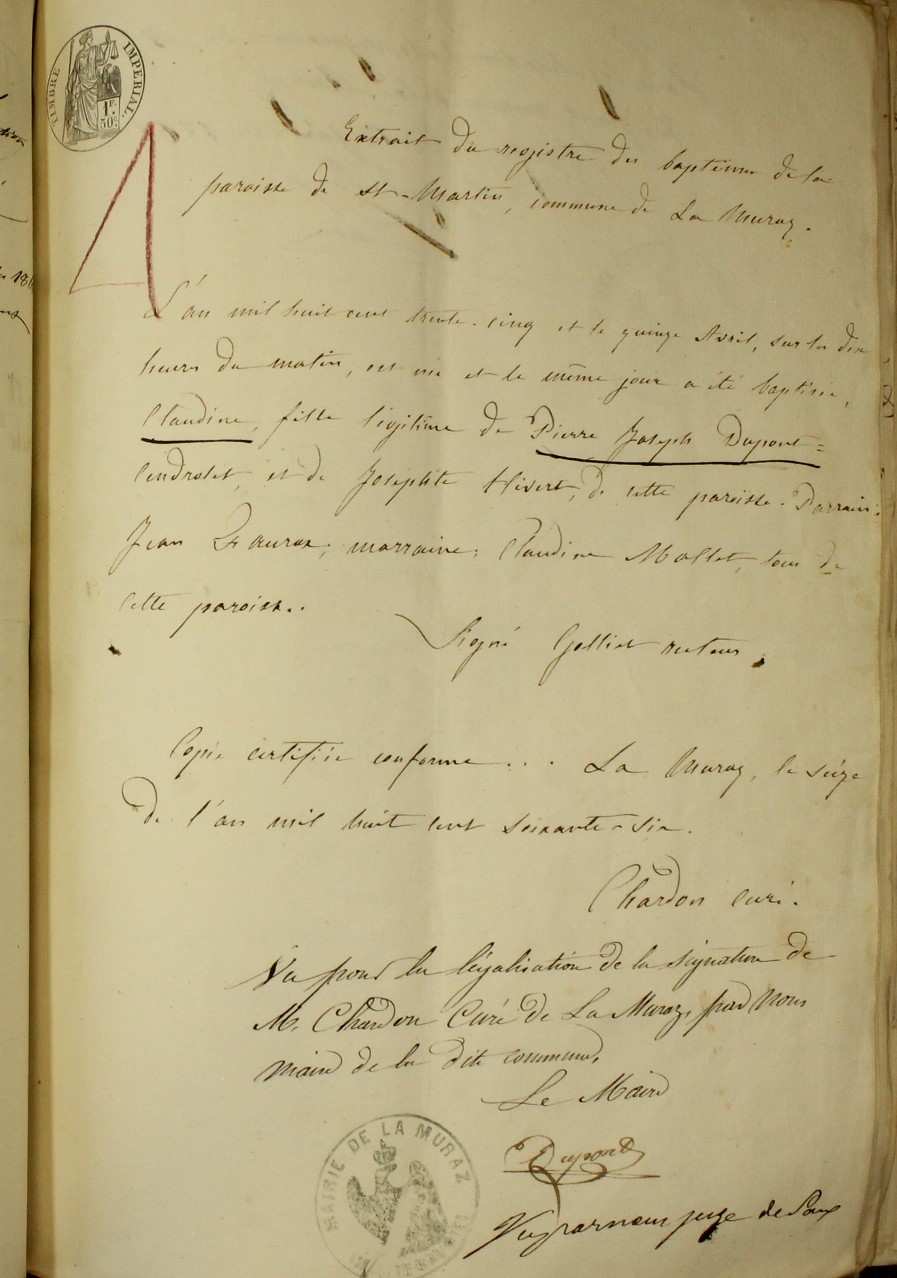 TIMBRE IMPERIAL
1F
50c
Extrait du registre des baptêmes de la
paroisse de St-Martin, commune de La Muraz.
L'an mil huit cent trente-cinq et le quinze Avril, sur les dix
heures du matin, est née et le même jour a été baptisée,
Claudine, fille légitime de Pierre Joseph Dupont-
Cendrolet, et de Josephte Hivert, de cette paroisse. Parrain:
Jean marraine: Claudine Mallet, tous de
cette paroisse..
Signé recteur.
Copie certifiée conforme... La Muraz, le seize
de l'an mil huit cent soixante-six.
Chardon curé.
Vu pour la légalisation de la signature de
M. Chardon Curé de La Muraz, par Nous
maire de la dite commune,
Le Maire
Dupond
Vu par nous juge de Paix
MAIRIE DE LA MURAZ